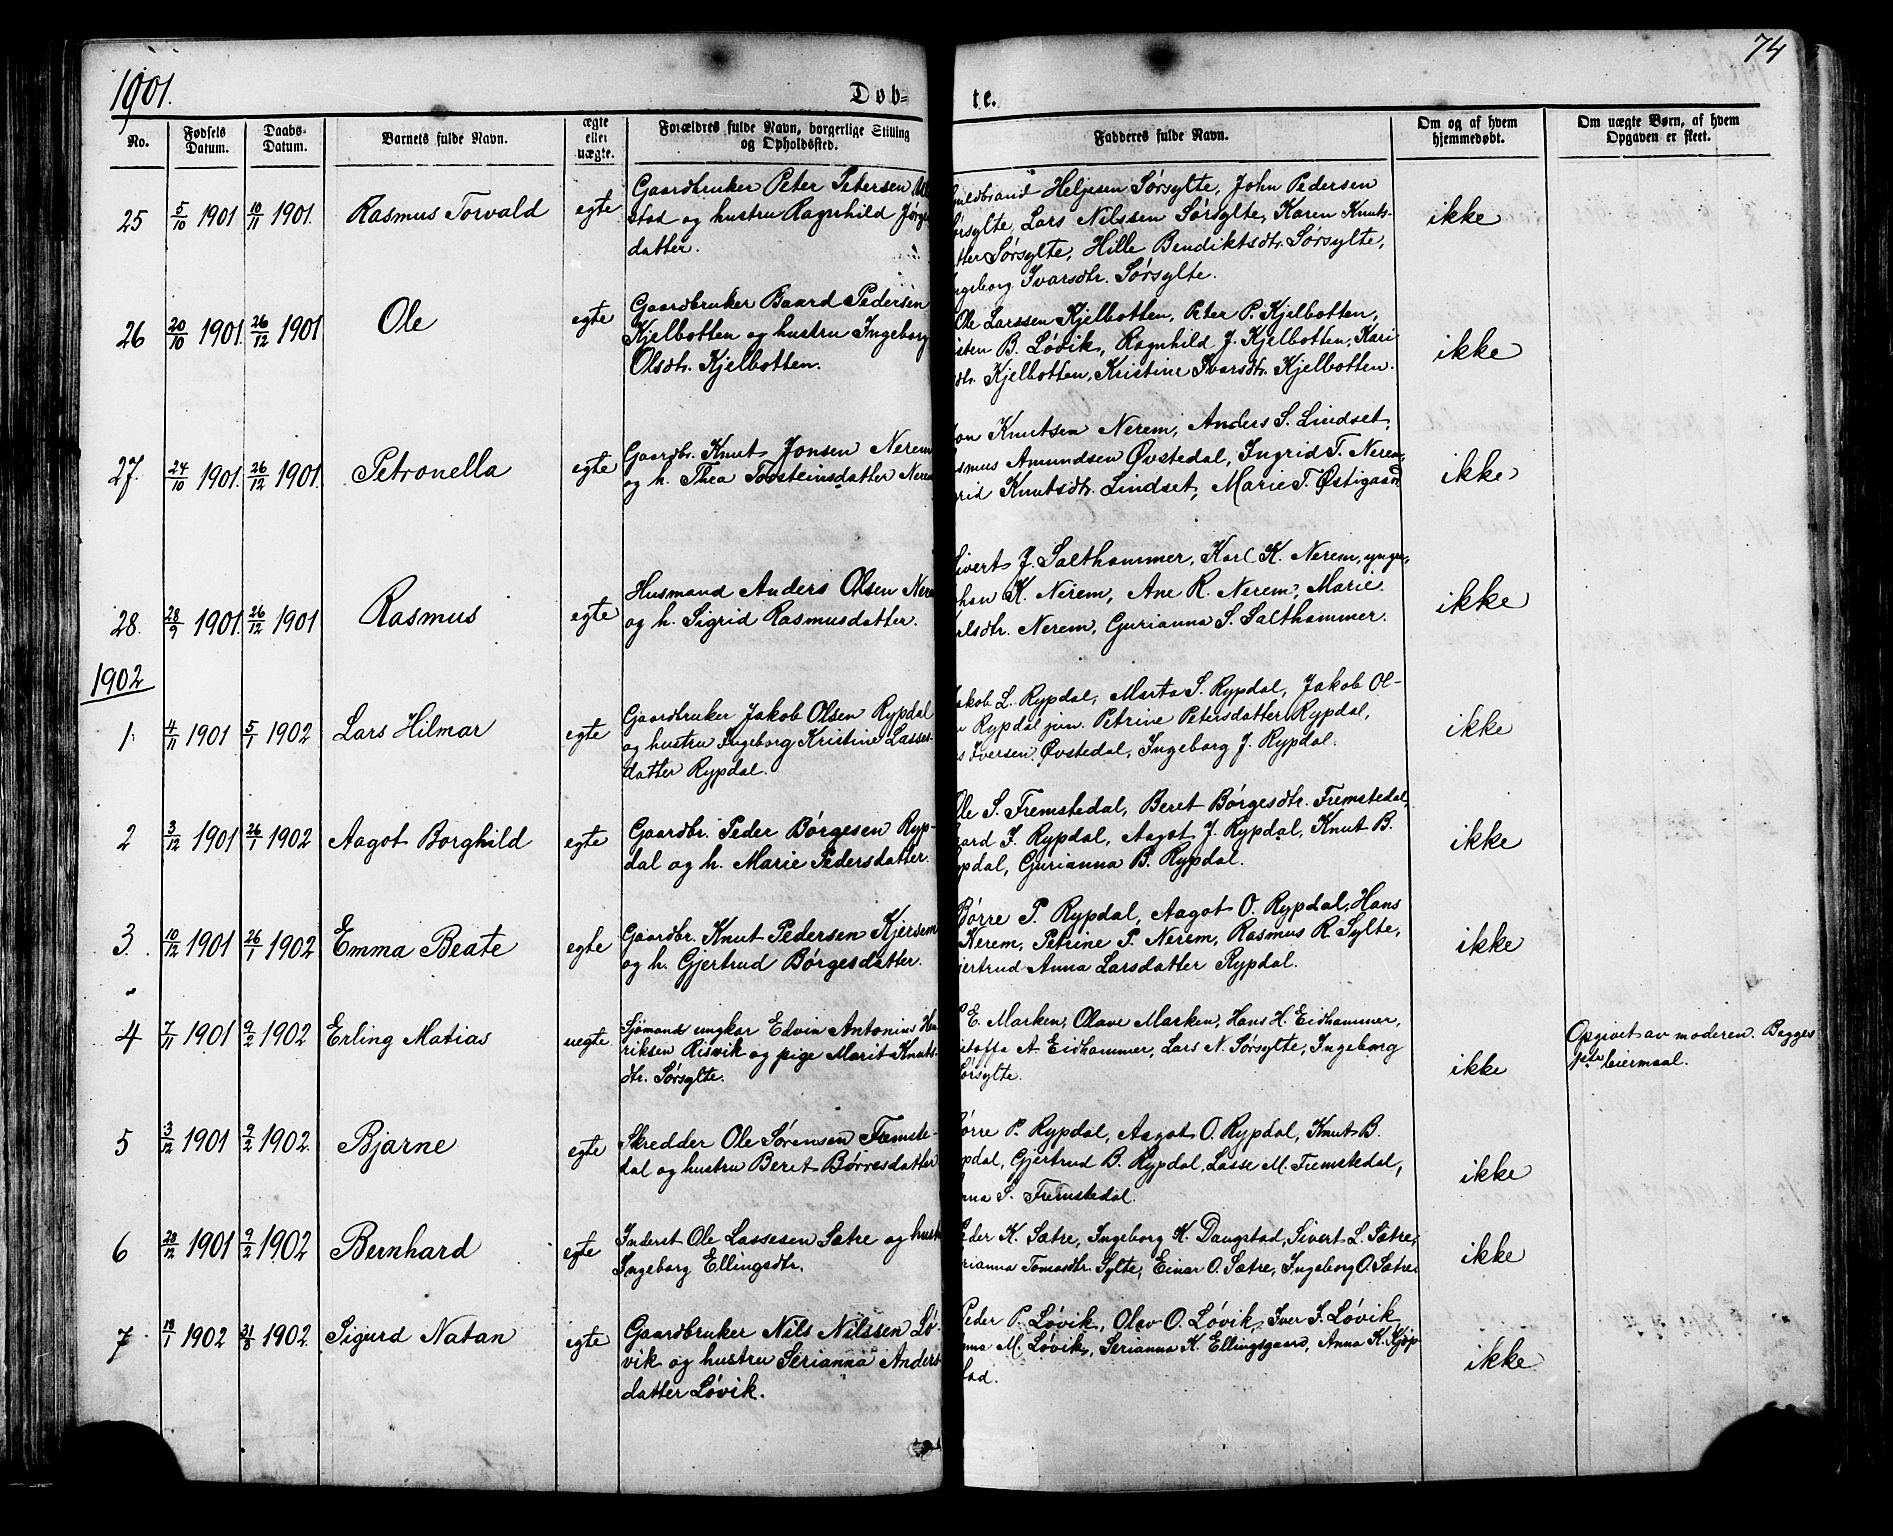 1901.
Døb-
te.
74
No.
Fødsels Datum.
Daabs- Datum.
Barnets fulde Navn.
ægte eller uægte.
Forældres fulde Navn, borgerlige Stilling og Opholdssted.
Fadderes fulde Navn.
Om og af hvem hjemmedøbt.
Om uægte Børn, af hvem Opgaven er skeet.
25 5/10 1901 10/11 1901. Rasmus Torvald egte
Gaardbruker Peter Petersen
stad og hustru Ragnhild Jørgs
datter.
Heljesen Sørsylte, John Pedersen
Sørsylte, Lars Nilssen Sørsylte, Karen Knuts-
datter Sørsylte, Hille Bendiktsdtr. Sørsylte,
Ingeborg Ivarsdtr. Sørsylte.
ikke
26 20/10 1901. 26/12 1901 Ole egte
Gaardbruker Baard Pedersen
Kjelbotten og hustru Ingeborg
Olsdtr. Kjelbotten.
Ole Larssen Kjelbotten, Peter P. Kjelbotten,
sten B. Løvik, Ragnhild J. Kjelbotten, Kari
dtr. Kjelbotten, Kristine Ivarsdtr. Kjelbotten.
ikke
27. 24/10 1901. 26/12 1901. Petronella egte
Gaardbr. Knut Jonsen Nerem
og h. Thea Torsteinsdatter Nerem
on Knutsen Nerem, Anders S. Lindset,
smus Amundsen Øvstedal, Ingrid T. Nerem,
grid Knutsdtr. Lindset, Marie T. Østigaard
ikke
28. 28/9 1901. 26/12 1901 Rasmus egte
Husmand Anders Olsen Nere
og h. Sigrid Rasmusdatter.
Sivert J. Salthammer, Karl K. Nerem, ynger,
ohan K. Nerem, Ane R. Nerem, Marie
rlsdtr. Nerem, Gurianna S. Salthammer.
ikke
1902
1. 4/11 1901 5/1 1902 Lars Hilmar egte
Gaardbruker Jakob Olsen Rypdal
og hustru Ingeborg Kristine Lasses-
datter Rypdal.
Jakob L. Rypdal, Marta S. Rypdal, Jakob Ol-
Rypdal jun. Petrine Petersdatter Rypdal,
s Iversen Øvstedal, Ingeborg J. Rypdal.
ikke
2 3/12 1901 26/1 1902 Aagot Borghild egte
Gaardbr. Peder Børgesen Ryp-
dal og h. Marie Pedersdatter.
Ole S. Fremstedal, Beret Børgesdtr. Fremstedal,
aard J. Rypdal, Aagot J. Rypdal, Knut B.
ypdal, Gurianna B. Rypdal.
ikke
3. 10/12 1901 26/1 1902 Emma Beate egte
Gaardbr. Knut Pedersen Kjersem
og h. Gjertrud Børgesdatter.
Børre P. Rypdal, Aagot O. Rypdal, Hans
Nerem, Petrine P. Nerem, Rasmus R. Sylte,
jertrud Anna Larsdatter Rypdal.
ikke
4 7/11 1901 9/2 1902 Erling Matias uegte
Sjømand ungkar Edvin Antonius Hen
riksen Risvik og pige Marit Knuts-
dtr. Sørsylte.
E. Marken, Olave Marken, Hans H. Eidhammer,
istoffa A Eidhammer, Lars N. Sørsylte, Ingeborg
Sørsylte.
ikke
Opgivet av moderen. Begges
1ste leiermaal.
5 3/12 1901 9/2 1902. Bjarne egte
Skredder Ole Sørensen Fremste-
dal og hustru Beret Børresdatter
Børre P. Rypdal, Aagot O. Rypdal, Knut B.
ypdal, Gjertrud B. Rypdal, Lasse M. Fremstedal,
nna S. Fremstedal.
ikke
6 28/12 1901 9/2 1902 Bernhard egte
Inderst Ole Lassesen Sætre og hust
Ingeborg Ellingsdtr.
Peder K. Sætre, Ingeborg K. Daugstad, Sivert L. Sætre,
rianna Tomasdtr. Sylte, Einar O. Sætre, Ingeborg O. Sætre.
ikke
7. 18/1 1902 31/8 1902. Sigurd Natan egte
Gaardbruker Nils Nilssen Lø-
vik og hustru Serianna Anders
datter Løvik.
Peder P. Løvik, Olav O. Løvik, Iver J. Løvik
nna M. Løvik, Serianna K. Ellingsgaard, Anna K. Kjøp
stad.
ikke